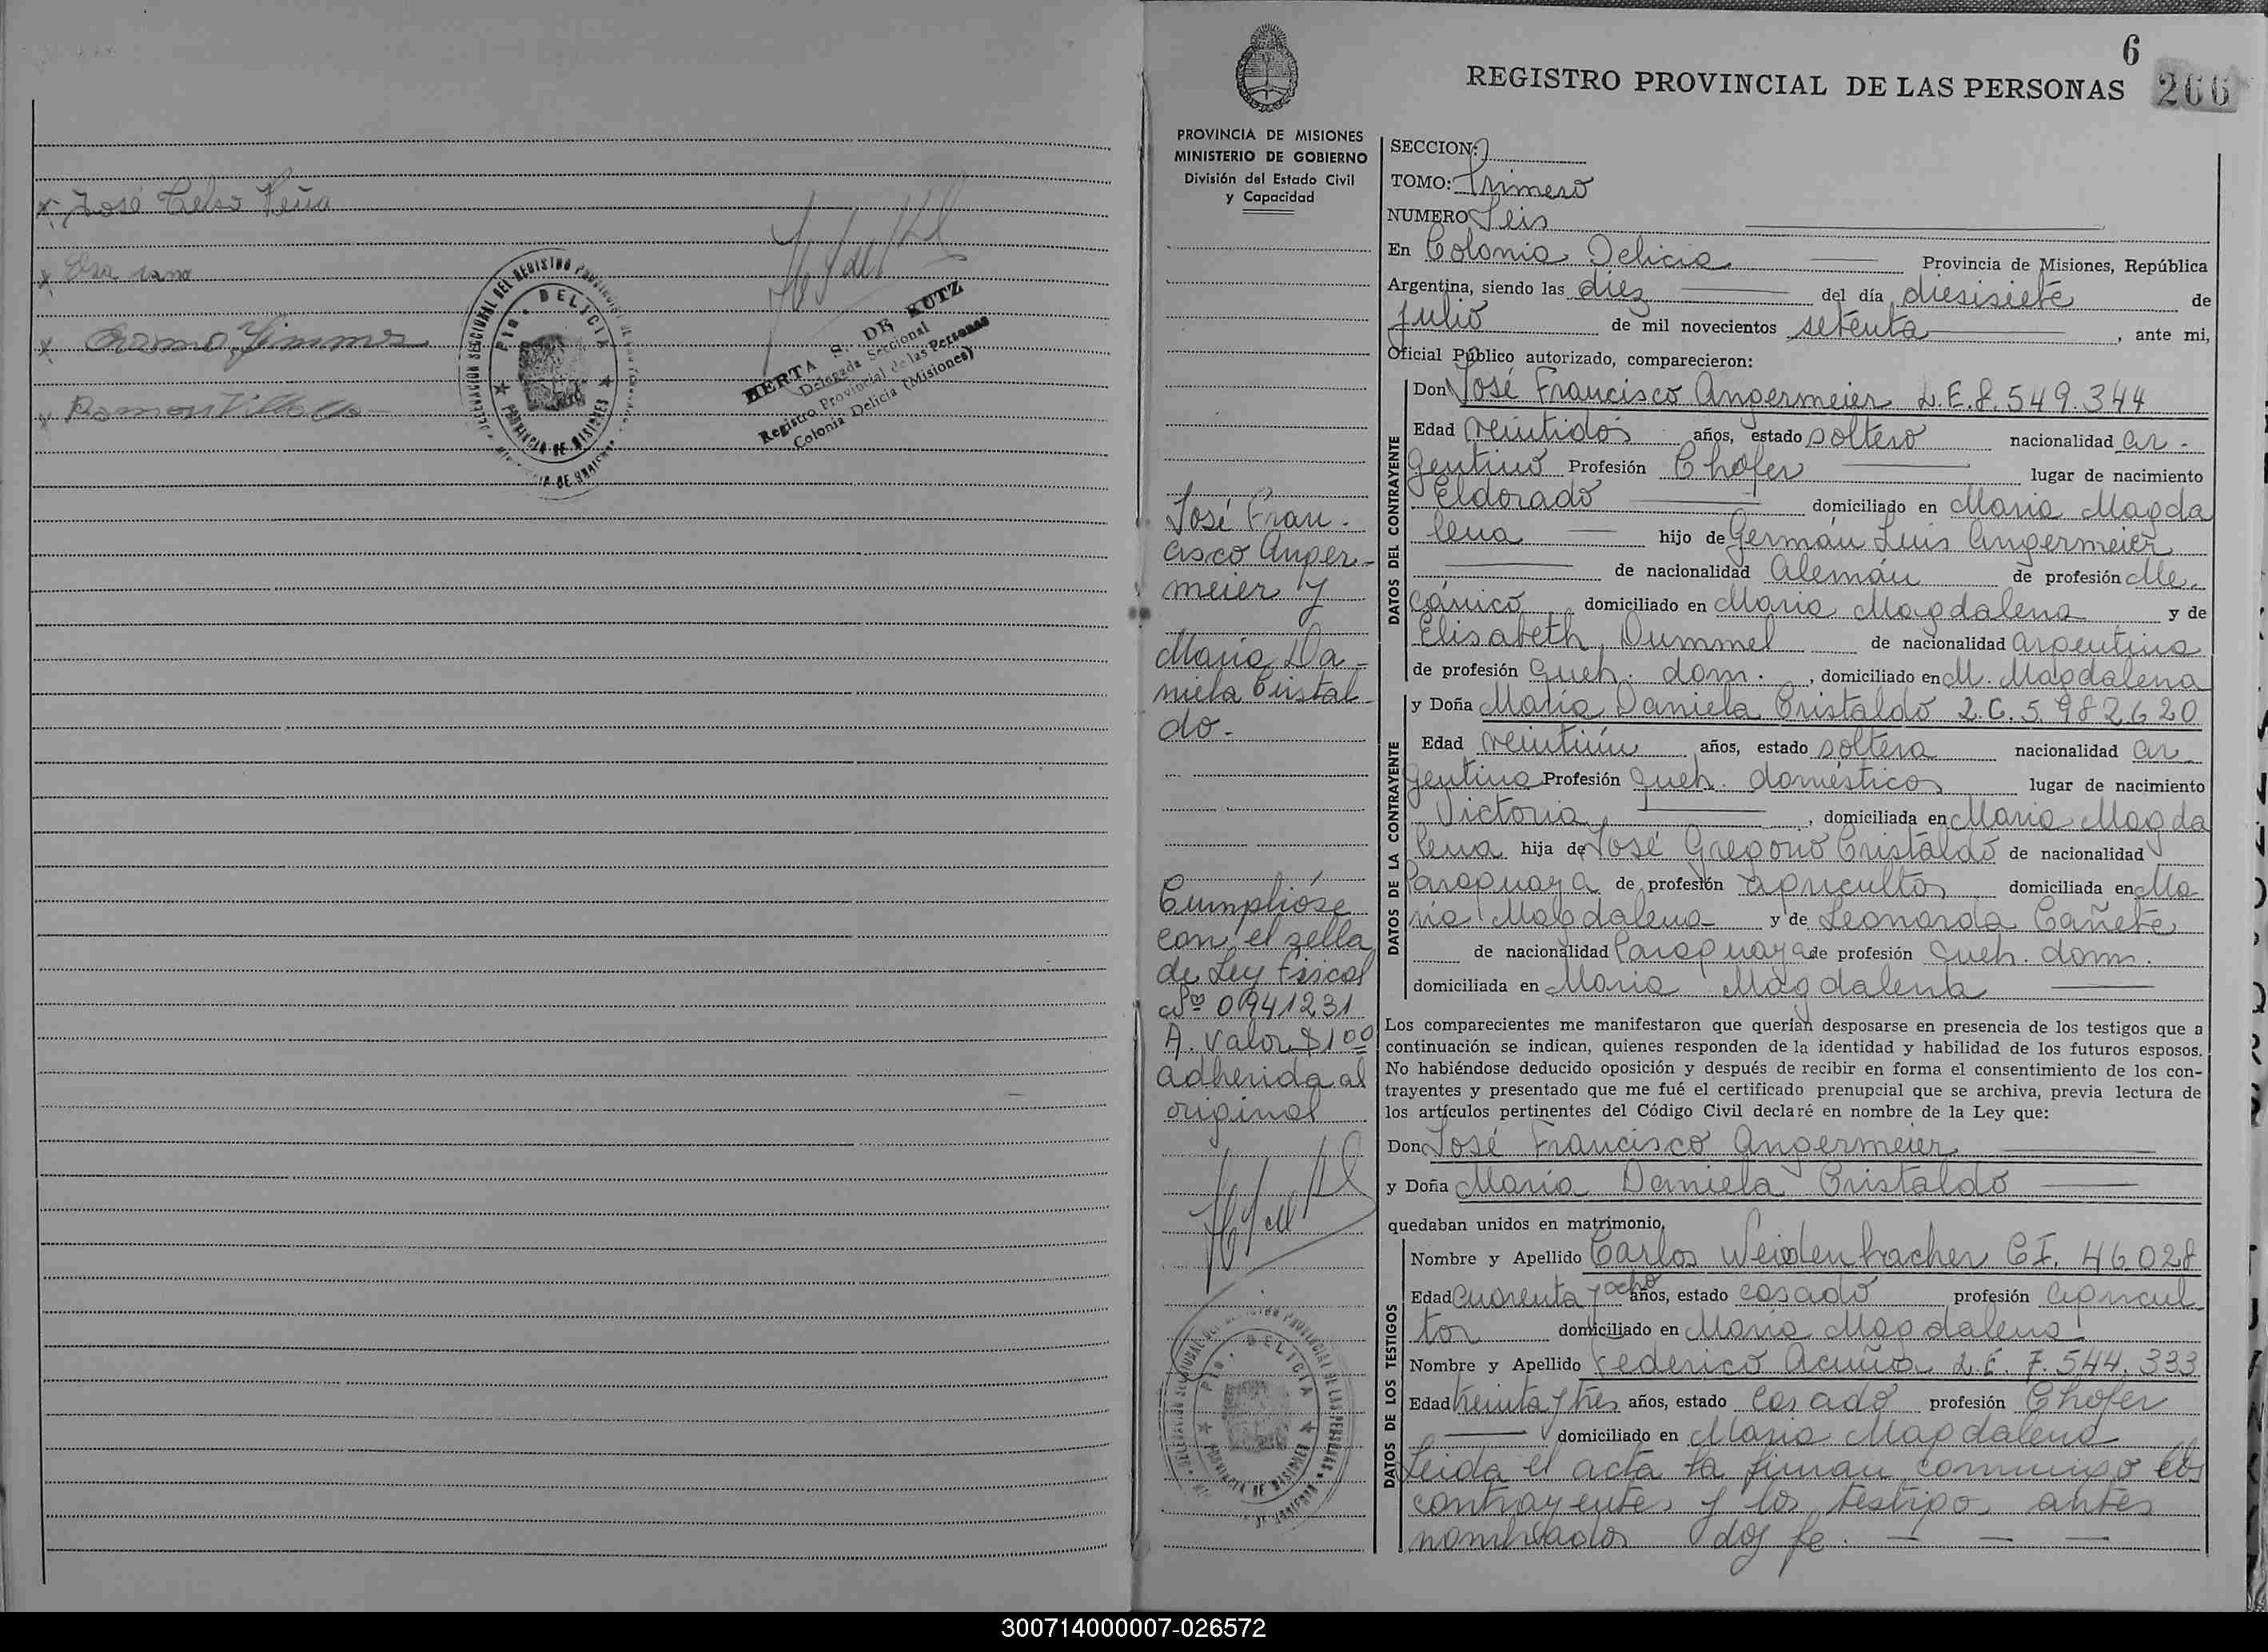 José Celso Peña
HERTA S. DE KUTZ
Delegada Seccional
Registro Provincial de las Personas
Colonia Delicia (Misiones)
PTO. DELICIA
PROVINCIA DE MISIONES
6
REGISTRO PROVINCIAL DE LAS PERSONAS 266
PROVINCIA DE MISIONES
MINISTERIO DE GOBIERNO
División del Estado Civil
y Capacidad
José Fran-
cisco Anger-
meier y
María Da-
niela Cristal-
do.-
Cumplióse
con el sella
de Ley Fiscal
Nº 0941231
A. valor $100
adherida al
original
SECCION:
TOMO: Primero
NUMERO Seis
En Colonia Delicia Provincia de Misiones, República
Argentina, siendo las diez del día diesisiete de
Julio de mil novecientos setenta, ante mi,
Oficial Público autorizado, comparecieron:
DATOS DEL CONTRAYENTE
Don José Francisco Angermeier L.E. 8.549.344
Edad veintidos años, estado soltero nacionalidad ar-
gentino Profesión Chofer lugar de nacimiento
Eldorado domiciliado en María Magda
lena hijo de Germán Luis Angermeier
de nacionalidad Alemán de profesión Me-
cánico domiciliado en María Magdalena y de
Elisabeth Dummel de nacionalidad argentina
de profesión Queh. dom., domiciliado en M. Magdalena
DATOS DE LA CONTRAYENTE
y Doña María Daniela Cristaldo L.C. 5.982.620
Edad veintiún años, estado soltera nacionalidad ar-
gentina Profesión Queh. domésticos lugar de nacimiento
Victoria, domiciliada en María Magda
lena hija de José Gregorio Cristaldo de nacionalidad
Paraguaya de profesión agricultor domiciliada en Ma-
ría Magdalena y de Leonarda Cañete
de nacionalidad Paraguaya de profesión Queh. dom.
domiciliada en María Magdalena
Los comparecientes me manifestaron que querían desposarse en presencia de los testigos que a
continuación se indican, quienes responden de la identidad y habilidad de los futuros esposos.
No habiéndose deducido oposición y después de recibir en forma el consentimiento de los con-
trayentes y presentado que me fué el certificado prenupcial que se archiva, previa lectura de
los artículos pertinentes del Código Civil declaré en nombre de la Ley que:
Don José Francisco Angermeier
y Doña María Daniela Cristaldo
quedaban unidos en matrimonio.
DATOS DE LOS TESTIGOS
Nombre y Apellido Carlos Weidenbacher C.I. 46.028
Edad cuarenta y ocho años, estado casado profesión agricul-
tor domiciliado en María Magdalena
Nombre y Apellido Federico Acuña L.E. 7.544.333
Edad treinta y tres años, estado casado profesión Chofer
domiciliado en María Magdalena
Leida el acta la firman conmigo los
contrayentes y los testigos antes
nombrados doy fe. - - -
300714000007-026572